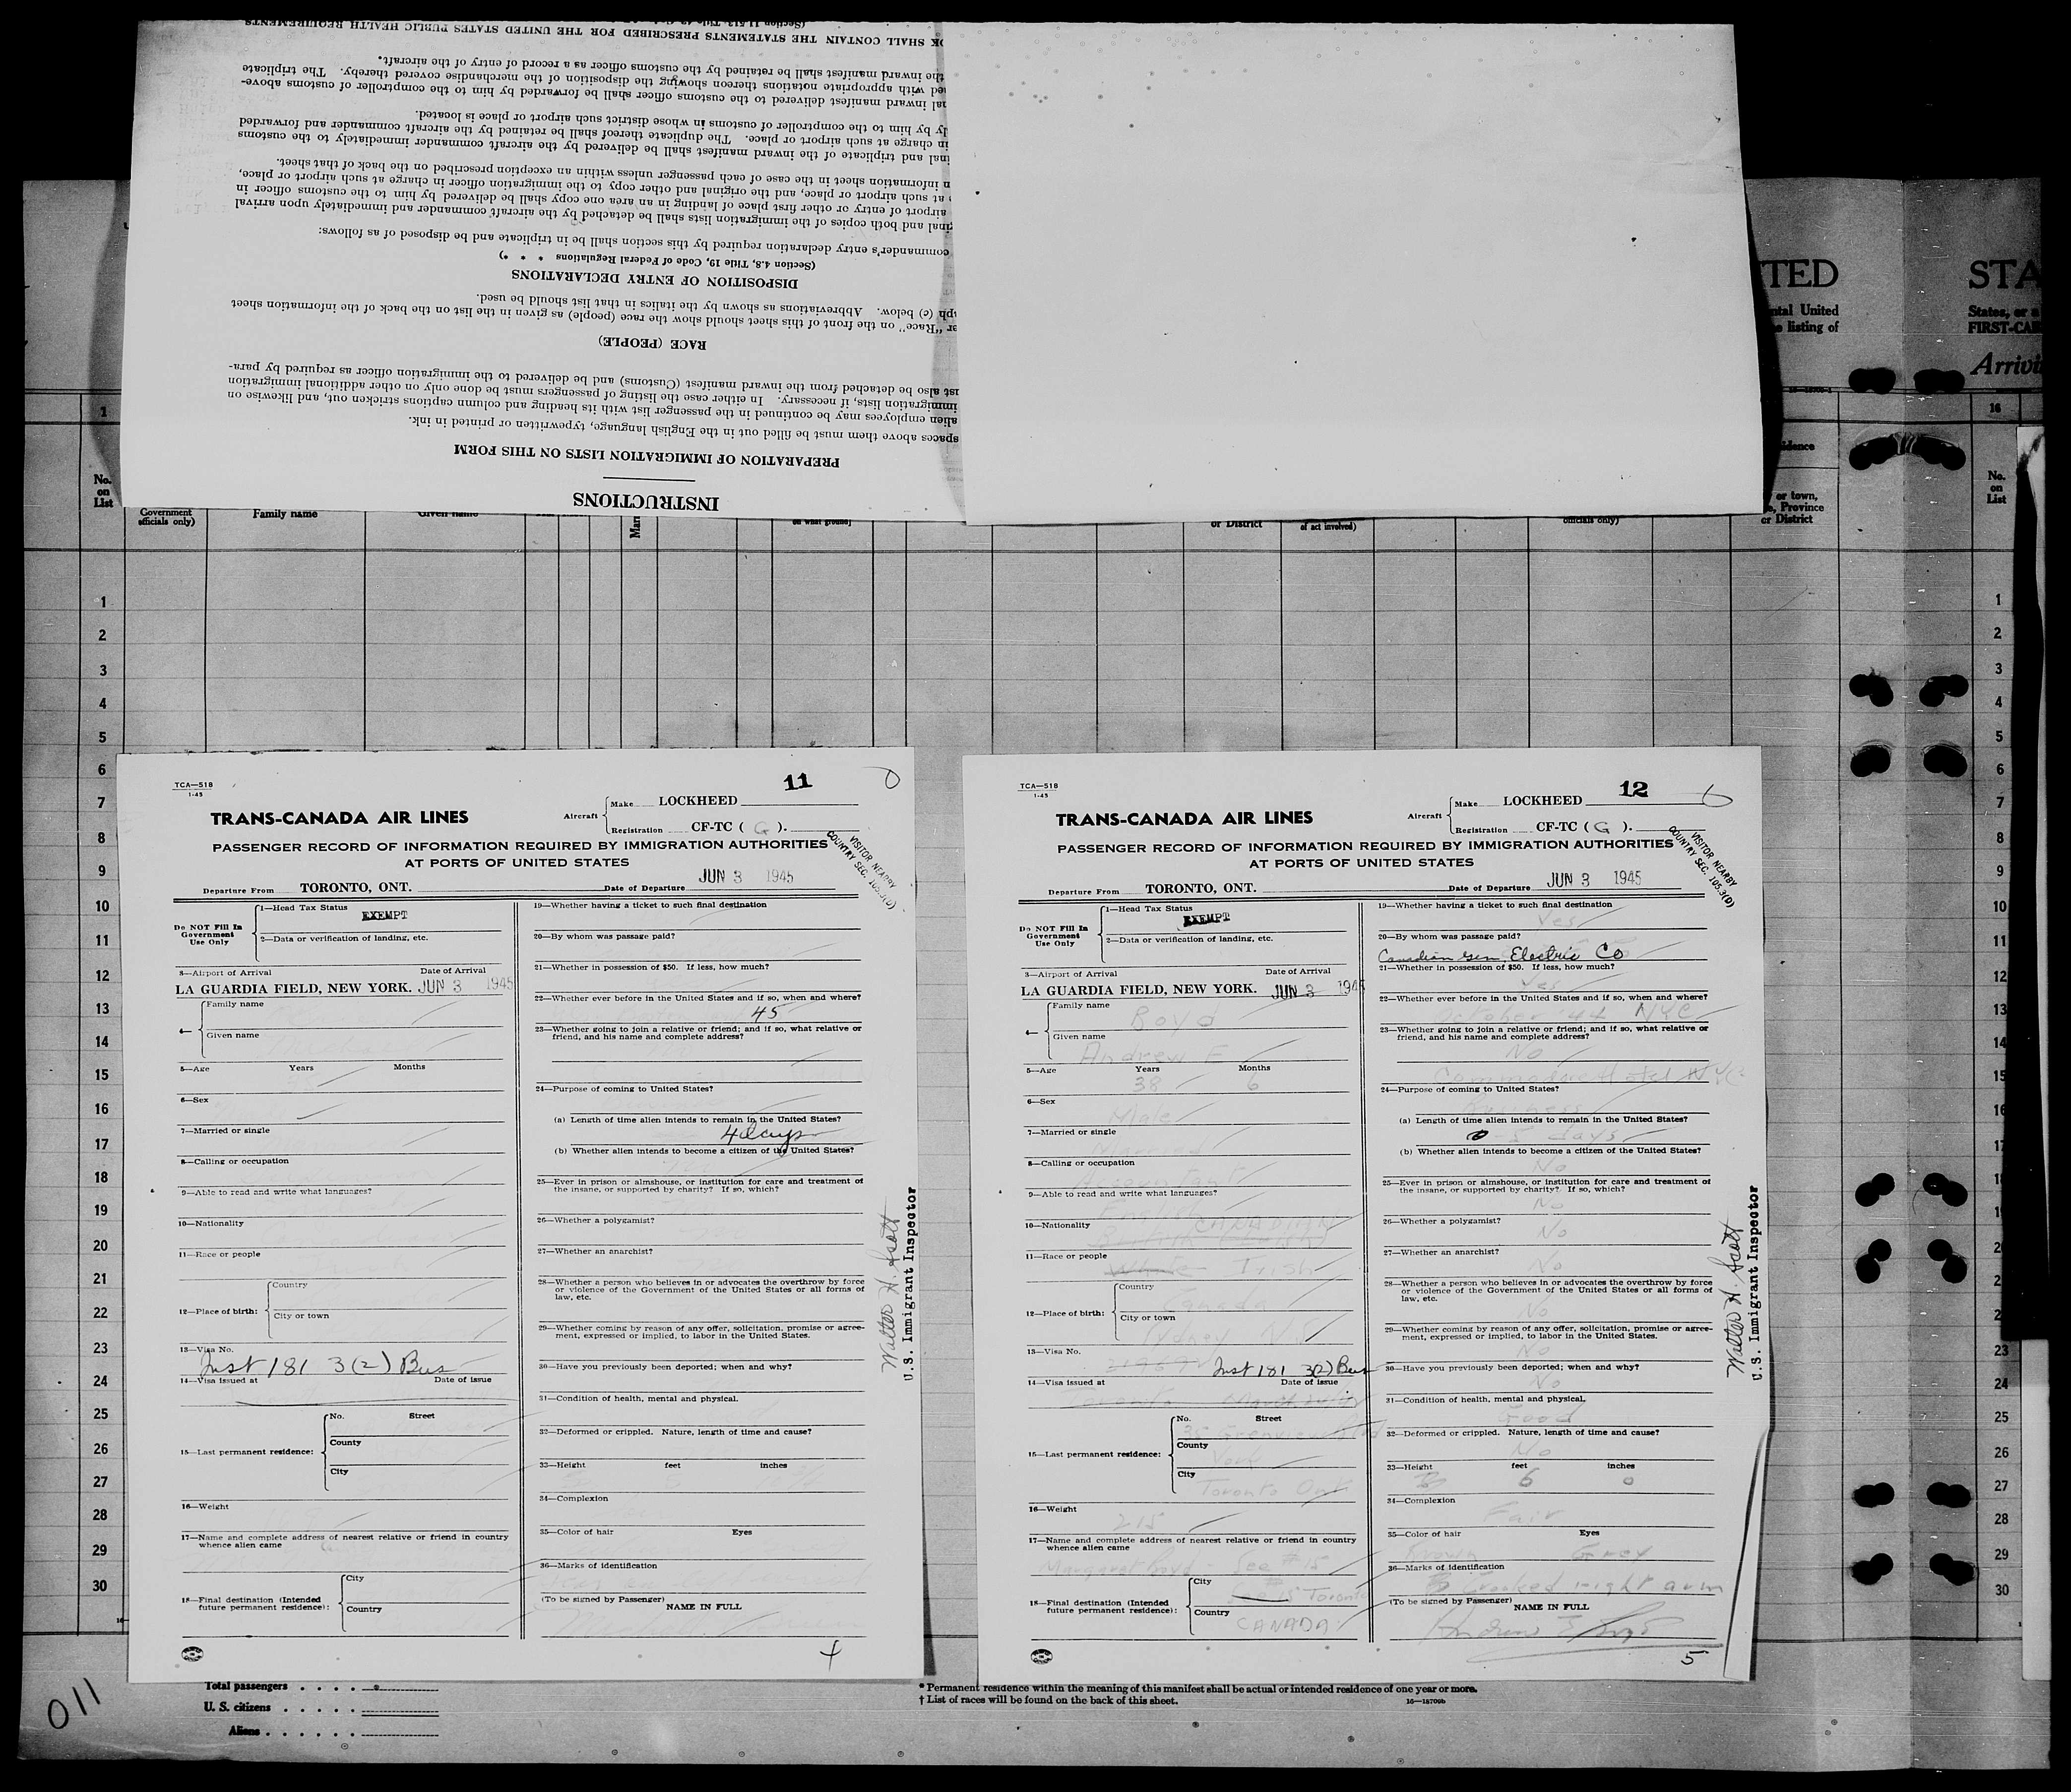 (Section 11.513, Title
OK SHALL CONTAIN THE STATEMENTS PRESCRIBED FOR THE UNITED STATES PUBLIC HEALTH REQUIREMENTS
the inward manifest shall be retained by the customs officer as a record of entry of the aircraft.
ed with appropriate notations thereon showing the disposition of the merchandise covered thereby. The triplicate
nal inward manifest delivered to the customs officer shall be forwarded by him to the comptroller of customs above-
ly by him to the comptroller of customs in whose district such airport or place is located.
in charge at such airport or place. The duplicate thereof shall be retained by the aircraft commander and forwarded
inal and triplicate of the inward manifest shall be delivered by the aircraft commander immediately to the customs
n information sheet in the case of each passenger unless within an exception prescribed on the back of that sheet.
at such airport or place, and the original and other copy to the immigration officer in charge at such airport or place,
airport of entry or other first place of landing in an area one copy shall be delivered by him to the customs officer in
inal and both copies of the immigration lists shall be detached by the aircraft commander and immediately upon arrival
commander's entry declaration required by this section shall be in triplicate and be disposed of as follows:
(Section 4.8, Title 19, Code of Federal Regulations * * *)
DISPOSITION OF ENTRY DECLARATIONS
aph (c) below. Abbreviations as shown by the italics in that list should be used.
er "Race" on the front of this sheet should show the race (people) as given in the list on the back of the information sheet
RACE (PEOPLE)
ust also be detached from the inward manifest (Customs) and be delivered to the immigration officer as required by para-
immigration lists, if necessary. In either case the listing of passengers must be done only on other additional immigration
alien employees may be continued in the passenger list with its heading and column captions stricken out, and likewise on
spaces above them must be filled out in the English language, typewritten or printed in ink.
PREPARATION OF IMMIGRATION LISTS ON THIS FORM
INSTRUCTIONS
TED STA
ntal United States, or a
e listing of FIRST-CAB
Arrivi
1 16
idence
No. on List
Government officials only) Family name Given name
on what ground) or District of act involved) officials only)
or town, Province or District
No. on List
1 1
2 2
3 3
4 4
5 5
6 6
7 7
8 8
9 9
10 10
11 11
12 12
13 13
14 14
15 15
16 16
17 17
18 18
19
20
21
22
23 23
24 24
25 25
26 26
27 27
28 28
29 29
30 30
TCA—518
1-45
11
TRANS-CANADA AIR LINES
Aircraft Make LOCKHEED
Registration CF-TC ( G ).
PASSENGER RECORD OF INFORMATION REQUIRED BY IMMIGRATION AUTHORITIES
AT PORTS OF UNITED STATES
VISITOR NEARBY
COUNTRY SEC. 105.3(D)
Departure From TORONTO, ONT. Date of Departure JUN 3 1945
Do NOT Fill In
Government
Use Only
1—Head Tax Status
EXEMPT
2—Data or verification of landing, etc.
3—Airport of Arrival Date of Arrival
LA GUARDIA FIELD, NEW YORK. JUN 3 1945
4— Family name
Given name
5—Age Years Months
6—Sex
7—Married or single
8—Calling or occupation
9—Able to read and write what languages?
10—Nationality
11—Race or people
12—Place of birth: Country
City or town
13—Visa No.
Inst 181 3(2) Bus
14—Visa issued at Date of issue
15—Last permanent residence: No. Street
County
City
16—Weight
17—Name and complete address of nearest relative or friend in country
whence alien came
18—Final destination (Intended
future permanent residence): City
Country
19—Whether having a ticket to such final destination
20—By whom was passage paid?
21—Whether in possession of $50. If less, how much?
22—Whether ever before in the United States and if so, when and where?
45
23—Whether going to join a relative or friend; and if so, what relative or
friend, and his name and complete address?
24—Purpose of coming to United States?
(a) Length of time alien intends to remain in the United States?
4 days
(b) Whether alien intends to become a citizen of the United States?
25—Ever in prison or almshouse, or institution for care and treatment of
the insane, or supported by charity? If so, which?
26—Whether a polygamist?
27—Whether an anarchist?
28—Whether a person who believes in or advocates the overthrow by force
or violence of the Government of the United States or all forms of
law, etc.
29—Whether coming by reason of any offer, solicitation, promise or agree-
ment, expressed or implied, to labor in the United States.
30—Have you previously been deported; when and why?
31—Condition of health, mental and physical.
32—Deformed or crippled. Nature, length of time and cause?
33—Height feet inches
34—Complexion
35—Color of hair Eyes
36—Marks of identification
(To be signed by Passenger) NAME IN FULL
4
Walter H. Scott
U.S. Immigrant Inspector
TCA—518
1-45
12
TRANS-CANADA AIR LINES
Aircraft Make LOCKHEED
Registration CF-TC ( G ).
PASSENGER RECORD OF INFORMATION REQUIRED BY IMMIGRATION AUTHORITIES
AT PORTS OF UNITED STATES
VISITOR NEARBY
COUNTRY SEC. 105.3(D)
Departure From TORONTO, ONT. Date of Departure JUN 3 1945
Do NOT Fill In
Government
Use Only
1—Head Tax Status
EXEMPT
2—Data or verification of landing, etc.
3—Airport of Arrival Date of Arrival
LA GUARDIA FIELD, NEW YORK. JUN 3 1945
4— Family name
Boyd
Given name
Andrew E
5—Age Years Months
38 6
6—Sex
Male
7—Married or single
Married
8—Calling or occupation
Accountant
9—Able to read and write what languages?
English
10—Nationality
CANADIAN
11—Race or people
White Irish
12—Place of birth: Country
Canada
City or town
Sydney N.S.
13—Visa No.
Inst 181 3(2) Bus
14—Visa issued at Date of issue
15—Last permanent residence: No. Street
County
York
City
Toronto Ont
16—Weight
215
17—Name and complete address of nearest relative or friend in country
whence alien came
Margaret Boyd See #15
18—Final destination (Intended
future permanent residence): City
Toronto
Country
CANADA
19—Whether having a ticket to such final destination
Yes
20—By whom was passage paid?
Canadian Gen. Electric Co
21—Whether in possession of $50. If less, how much?
Yes
22—Whether ever before in the United States and if so, when and where?
October '44 NYC
23—Whether going to join a relative or friend; and if so, what relative or
friend, and his name and complete address?
No
Commodore Hotel NYC
24—Purpose of coming to United States?
Business
(a) Length of time alien intends to remain in the United States?
5 days
(b) Whether alien intends to become a citizen of the United States?
No
25—Ever in prison or almshouse, or institution for care and treatment of
the insane, or supported by charity? If so, which?
No
26—Whether a polygamist?
No
27—Whether an anarchist?
No
28—Whether a person who believes in or advocates the overthrow by force
or violence of the Government of the United States or all forms of
law, etc.
No
29—Whether coming by reason of any offer, solicitation, promise or agree-
ment, expressed or implied, to labor in the United States.
No
30—Have you previously been deported; when and why?
No
31—Condition of health, mental and physical.
Good
32—Deformed or crippled. Nature, length of time and cause?
No
33—Height feet inches
6 0
34—Complexion
Fair
35—Color of hair Eyes
Brown Grey
36—Marks of identification
Crooked right arm
(To be signed by Passenger) NAME IN FULL
Andrew E Boyd
5
Walter H. Scott
U.S. Immigrant Inspector
011
Total passengers . . . .
U. S. citizens . . . . .
Aliens . . . . . .
* Permanent residence within the meaning of this manifest shall be actual or intended residence of one year or more.
† List of races will be found on the back of this sheet. 16—18709b